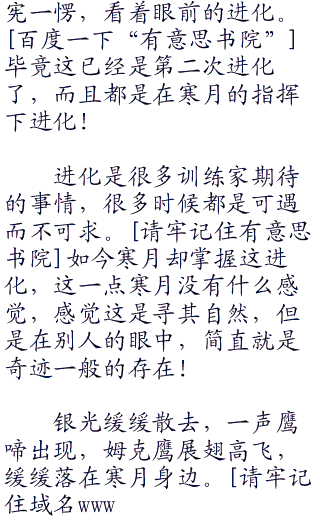 宪一愣，看着眼前的进化。
[百度一下“有意思书院”]
毕竟这已经是第二次进化
了，而且都是在寒月的指挥
下进化！
进化是很多训练家期待
的事情，很多时候都是可遇
而不可求。[请牢记住有意思
书院]如今寒月却掌握这进
化，这一点寒月没有什么感
觉，感觉这是寻其自然，但
是在别人的眼中，简直就是
奇迹一般的存在！
银光缓缓散去，一声鹰
啼出现，姆克鹰展翅高飞，
缓缓落在寒月身边。[请牢记
住域名www